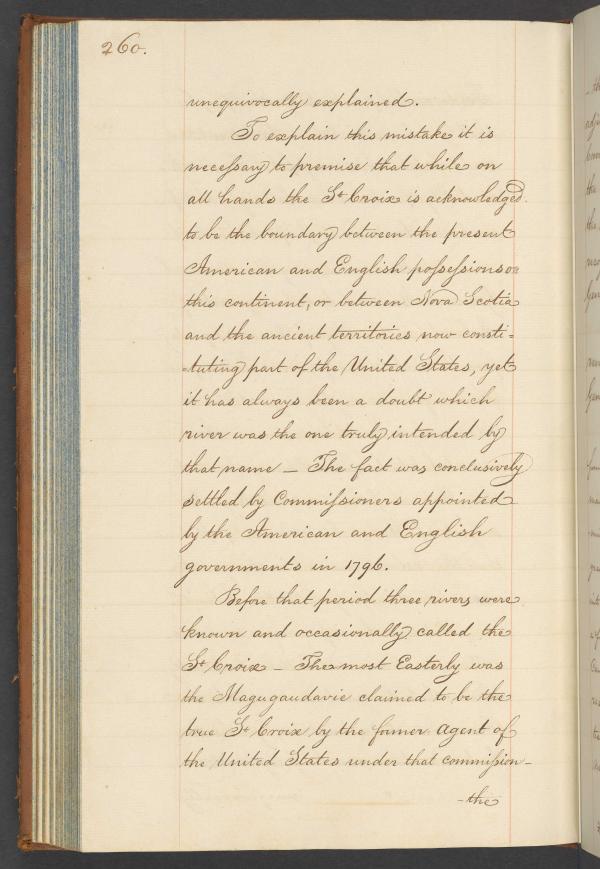 260.
unequivocally explained.
To explain this mistake it is
necessary to premise that while on
all hands the St Croix is acknowledged
to be the boundary between the present
American and English possessions on
this continent, or between Nova Scotia
and the ancient territories now consti=
=tuting part of the United States, yet
it has always been a doubt which
river was the one truly intended by
that name _ The fact was conclusively
settled by Commissioners appointed
by the American and English
governments in 1796.
Before that period three rivers were
known and occasionally called the
St Croix _ The most Easterly was
the Magugaudavic claimed to be the
true St Croix by the former agent of
the United States under that commission _
- the